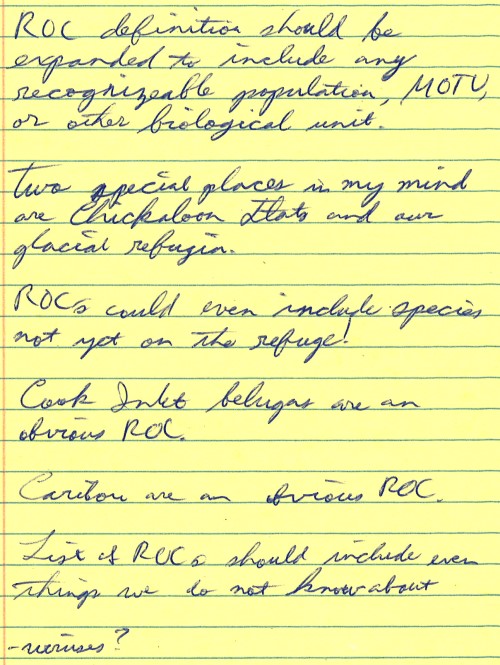 ROC definition should be
expanded to include any
recognizeable population, MOTU,
or other biological unit.
Two special places in my mind
are Chickaloon Flats and our
glacial refugia.
ROCs could even include species
not yet on the refuge!
Cook Inlet belugas are an
obvious ROC.
Caribou are an obvious ROC.
List of ROCs should include even
things we do not know about
-viruses?